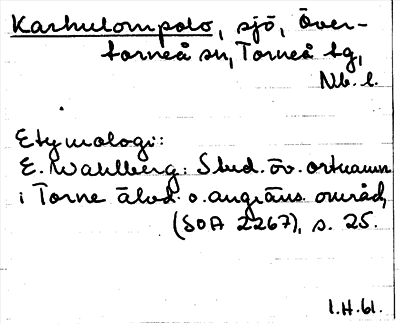 Karhulompolo, sjö, Över-
torneå sn, Torneå tg,
Nb. l.
Etymologi:
E. Wahlberg: Stud. öv. ortnamn
i Torne älvd. o. angräns. område,
(SOA 2267), s. 25.
1.H.61.